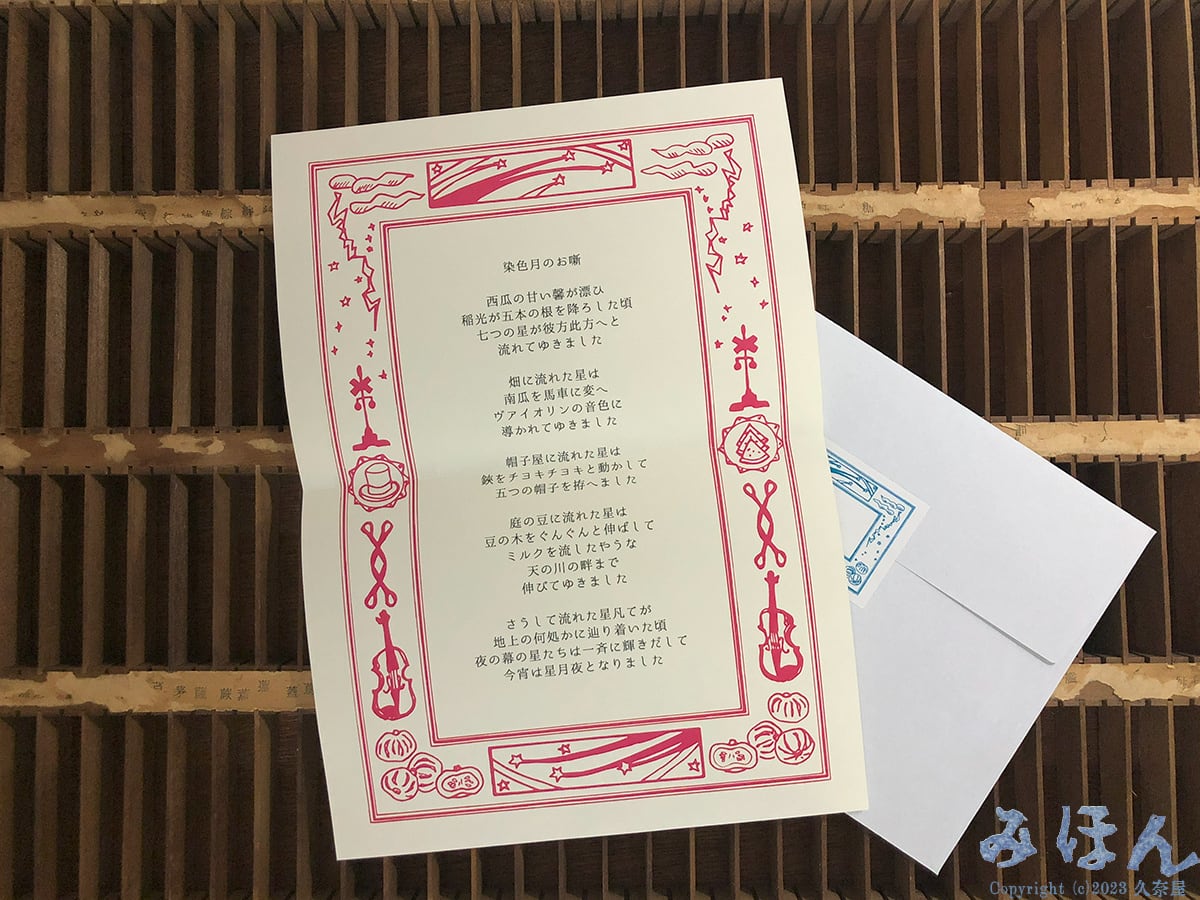 染色月のお噺
西瓜の甘い馨が漂ひ
稲光が五本の根を降ろした頃
七つの星が彼方此方へと
流れてゆきました
畑に流れた星は
南瓜を馬車に変へ
ヴァイオリンの音色に
導かれてゆきました
帽子屋に流れた星は
鋏をチョキチョキと動かして
五つの帽子を拵へました
庭の豆に流れた星は
豆の木をぐんぐんと伸ばして
ミルクを流したやうな
天の川の畔まで
伸びてゆきました
さうして流れた星凡てが
地上の何処かに辿り着いた頃
夜の幕の星たちは一斉に輝きだして
今宵は星月夜となりました
みほん
Copyright (c)2023 久奈屋